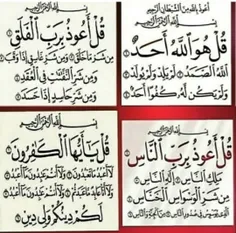 أعوذ بالله من الشيطان الرجيم
بسم الله الرحمن الرحيم
قُلْ هُوَ اللَّهُ أَحَدٌ
اللَّهُ الصَّمَدُ لَمْ يَلِدْ وَلَمْ يُولَدْ
وَلَمْ يَكُن لَّهُ كُفُوًا أَحَدٌ
بسم الله الرحمن الرحيم
قُلْ أَعُوذُ بِرَبِّ الْفَلَقِ
مِن شَرِّ مَا خَلَقَ وَمِن شَرِّ غَاسِقٍ إِذَا وَقَبَ
وَمِن شَرِّ النَّفَّٰثَٰتِ فِي الْعُقَدِ
وَمِن شَرِّ حَاسِدٍ إِذَا حَسَدَ
بسم الله الرحمن الرحيم
قُلْ أَعُوذُ بِرَبِّ النَّاسِ
مَلِكِ النَّاسِ إِلَٰهِ النَّاسِ
مِن شَرِّ الْوَسْوَاسِ الْخَنَّاسِ
الَّذِي يُوَسْوِسُ فِي صُدُورِ النَّاسِ مِنَ الْجِنَّةِ وَالنَّاسِ
بسم الله الرحمن الرحيم
قُلْ يَٰأَيُّهَا الْكَٰفِرُونَ
لَا أَعْبُدُ مَا تَعْبُدُونَ وَلَا أَنتُمْ عَٰبِدُونَ مَا أَعْبُدُ
وَلَا أَنَا عَابِدٌ مَّا عَبَدتُّمْ وَلَا أَنتُمْ عَٰبِدُونَ مَا أَعْبُدُ
لَكُمْ دِينُكُمْ وَلِيَ دِينِ